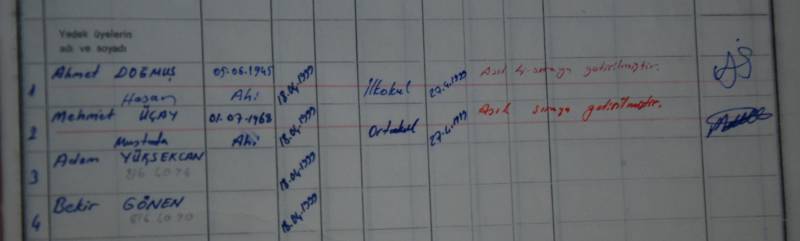 Yedek üyelerin
adı ve soyadı
1 Ahmet DOĞMUŞ 05.06.1945 18.04.1999 İlkokul 27.4.1999 Asıl 4. sıraya getirilmiştir.
Hasan Ahi
2 Mehmet ÜÇAY 01.07.1968 18.04.1999 Ortaokul 27.4.1999 Asıl sıraya getirilmiştir.
Mustafa Ahi
3 Adem YÜKSEKCAN 18.04.1999
4 Bekir GÖNEN 18.04.1999